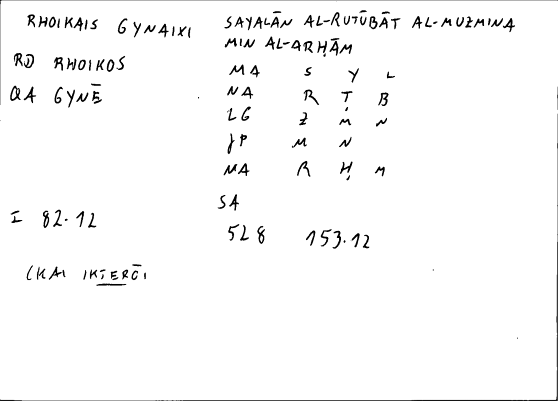 RHOIKAIS GYNAIXI
RD RHOIKOS
QA GYNĒ
I 82.12
(KAI IKTERŌI
SAYALĀN AL-RUṬŪBĀT AL-MUZMINA
MIN AL-ARḤĀM
MA S Y L
NA R Ṭ B
LG Z M N
JP M N
MA R Ḥ M
SA
528 153.12